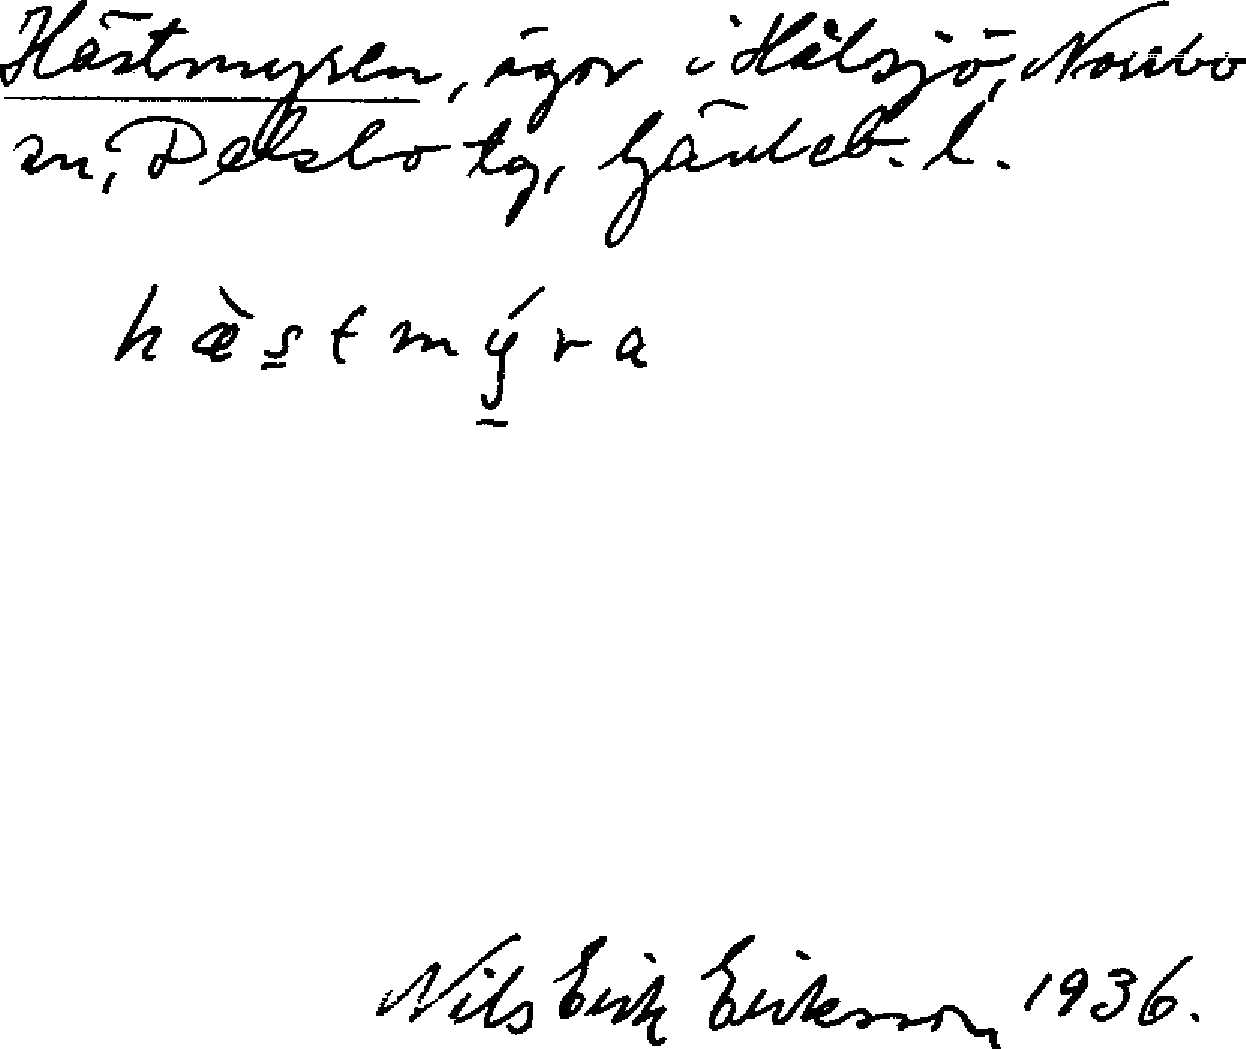 Hästmyren, ägor i Hålsjö, Norrbo
sn, Delsbo tg, Gävleb. l.
hæ̀s̲tmý̲ra
Nils Erik Eriksson 1936.